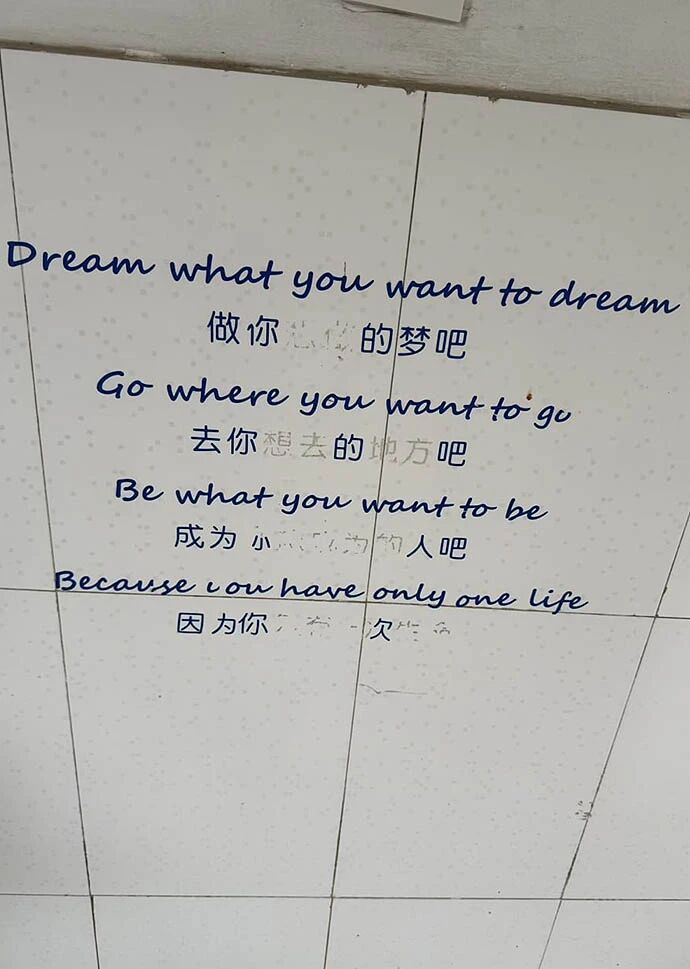 Dream what you want to dream
做你的梦吧
Go where you want to go
去你想去的地方吧
Be what you want to be
成为 为的人吧
Because you have only one life
因为你 一次